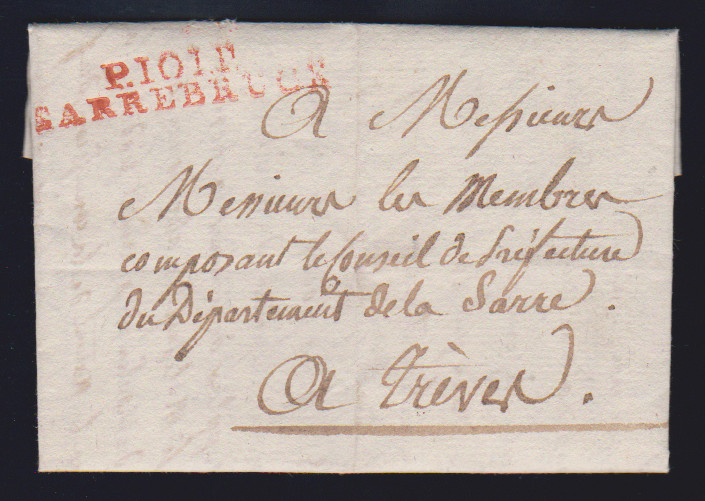 P.101.P.
SARREBRUCK
A Messieurs
Messieurs les Membres
composant le Conseil de Préfecture
du Département de la Sarre.
A Trèves.